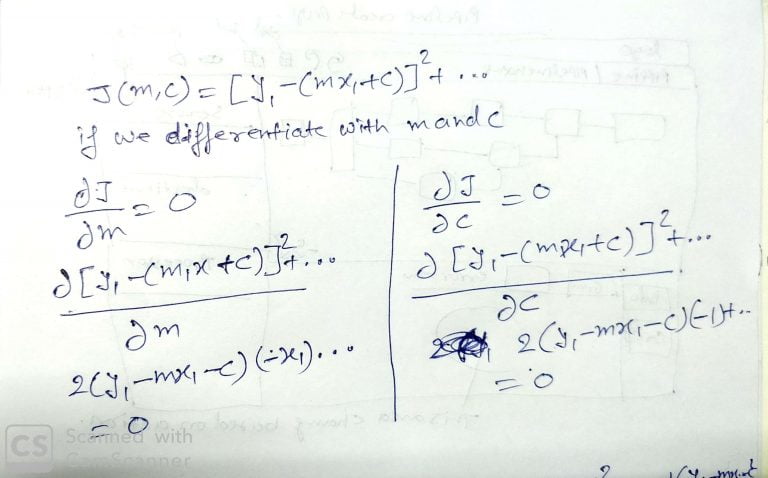 J(m,c) = [y₁-(mx₁+c)]²+ ...
if we differentiate with m and c
∂J/∂m = 0
∂[y₁-(m₁x+c)]²+...
∂m
2(y₁-mx₁-c)(-x₁)...
= 0
∂J/∂c = 0
∂[y₁-(mx₁+c)]²+...
∂c
2(y₁-mx₁-c)(-1)+..
= 0
CS Scanned with
CamScanner